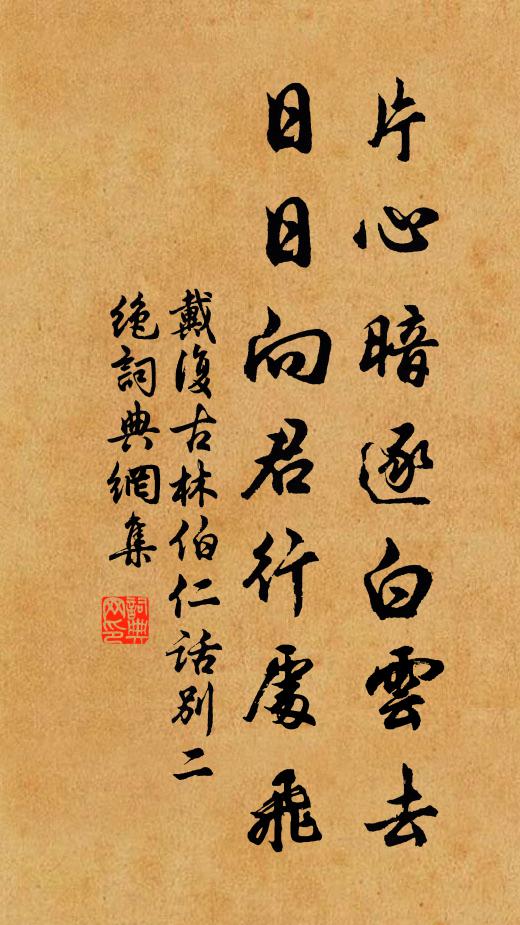 片心暗逐白雲去
日日向君行處飛
戴復古林伯仁話別二
絶詞典網集
詞典网印